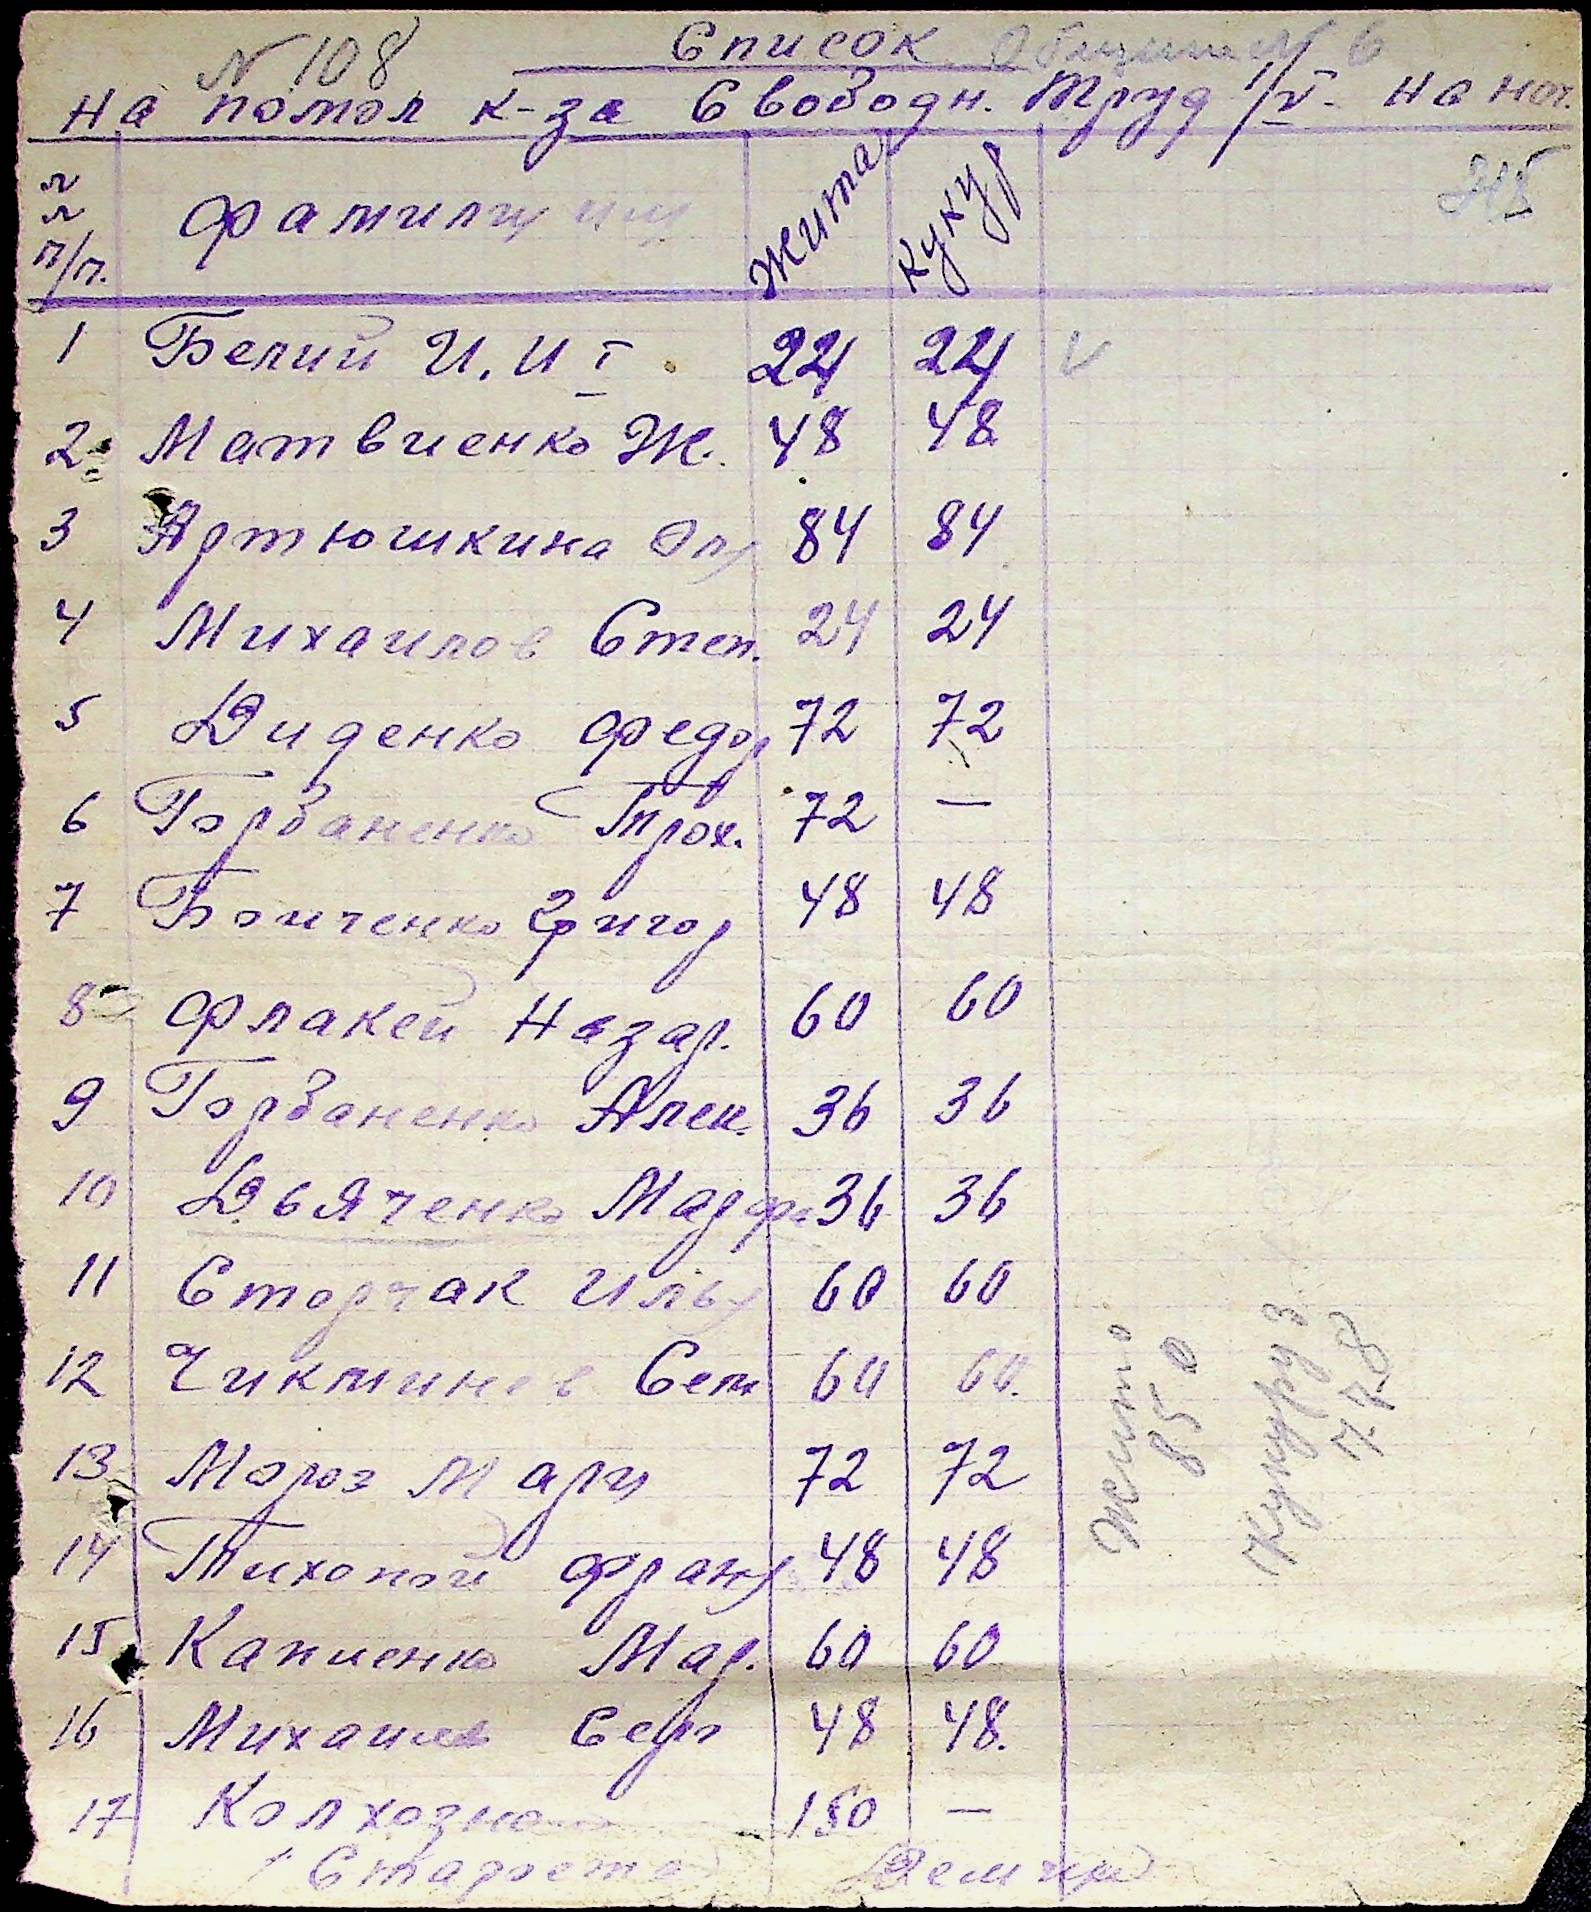 № 108 Список Общины № 6
на помол к-за Свободн. Труд 1/V - на ноч.
№ № п/п. Фамилия Жита Кукур
1 Белий И. И I 24 24 V
2 Матвиенко Ж. 48 48
3 Артюшкина Ол 84 84
4 Михаилов Степ. 24 24
5 Диденко Федор 72 72
6 Горбаненко Трох. 72 —
7 Боиченко Григор 48 48
8 Флакей Назар. 60 60
9 Горбаненко Алек. 36 36
10 Дьяченко Марфа 36 36
11 Сторчак Илья 60 60
12 Сем 60 60.
13 Мороз Мари 72 72
14 Тихопой Франц 48 48
15 Капиенко Мар. 60 60
16 Михаилов Серг 48 48.
17 Колхозно 150 —
Староста
Жито 850
Кукуруз 778